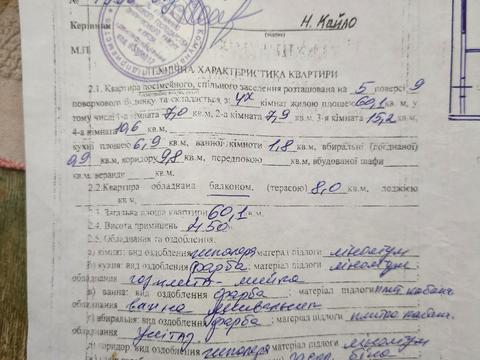 Керівник Н. Кайло
(підпис)
М.П
ТЕХНІЧНА ХАРАКТЕРИСТИКА КВАРТИРИ
2.1. Квартира посімейного, спільного заселення розташована на 5 поверсі 9
поверхового будинку та складається з 4х кімнат жилою площею 60,1 кв. м, у
тому числі 1-а кімната 7,0 кв.м, 2-а кімната 7,9 кв.м. 3-я кімната 15,2 кв.м,
4-а кімната 10,6 кв.м.
кухні площею 6,9 кв.м, ванної кімноти 1,8 кв.м, вбиральні (поєднаної)
0,9 кв.м, коридору 9,8 кв.м, передпокою кв.м, вбудованої шафи
кв.м, веранди кв.м.
2.2.Квартира обладнана балконом, (терасою) 8,0 кв.м, лоджією
кв.м,
2.3. Загальна площа квартири 60,1 кв.м.
2.4. Висота приміщень 2.50
2.5. Обладнання та оздоблення:
а) кімнати: вид оздоблення шпалери матеріал підлоги лінолеум
б) кухня: вид оздоблення фарба; матеріал підлоги лінолеум;
обладнання газ плита, мийка
в) ванна: вид оздоблення фарба; матеріал підлоги
обладнання ванна, умивальник
г) вбиральня: вид оздоблення фарба; матеріал підлоги
обладнання унітаз
д) коридор: вид оздоблення шпалери матеріал підлоги лінолеум